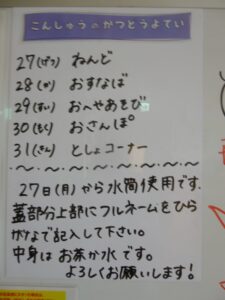 こんしゅうのかつどうよてい
27(げつ) ねんど
28(か) おすなば
29(すい) おへやあそび
30(もく) おさんぽ
31(きん) としょコーナー
~・~・~・~・~・~・~・~
27日(月)から水筒使用です。
蓋部分上部にフルネームをひら
がなで記入して下さい。
中身は お茶か水 です。
よろしくお願いします!